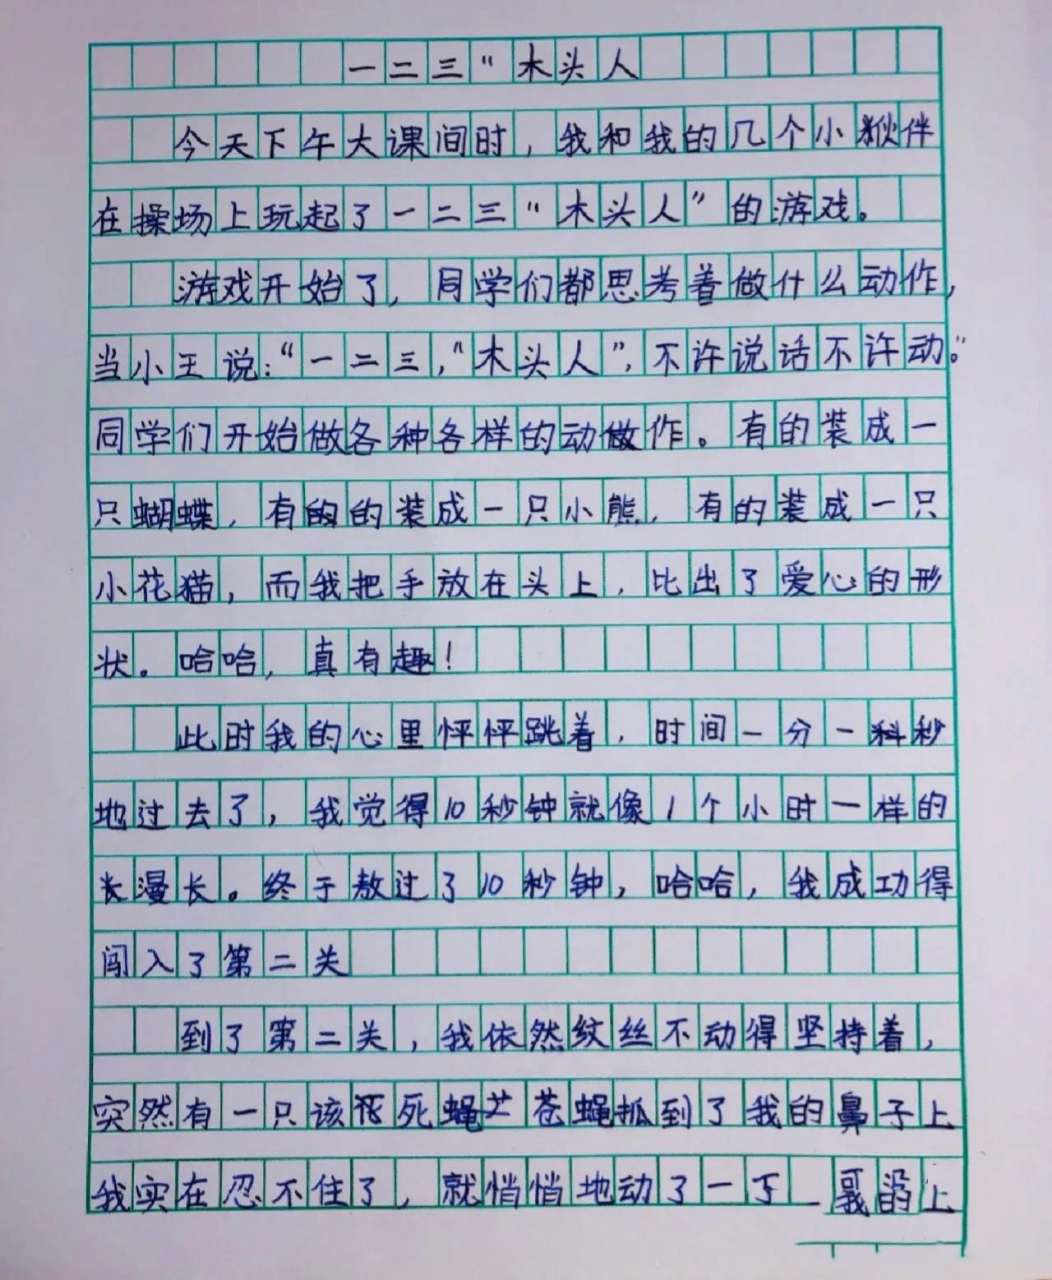 一二三“木头人
今天下午大课间时，我和我的几个小伙伴
在操场上玩起了一二三“木头人”的游戏。
游戏开始了，同学们都思考着做什么动作，
当小王说：“一二三，“木头人”，不许说话不许动。”
同学们开始做各种各样的动做作。有的装成一
只蝴蝶，有的的装成一只小熊，有的装成一只
小花猫，而我把手放在头上，比出了爱心的形
状。哈哈，真有趣！
此时我的心里怦怦跳着，时间一分一秒
地过去了，我觉得10秒钟就像1个小时一样的
长漫长。终于熬过了10秒钟，哈哈，我成功得
闯入了第二关
到了第二关，我依然纹丝不动得坚持着，
突然有一只该死苍蝇抓到了我的鼻子上
我实在忍不住了，就悄悄地动了一下